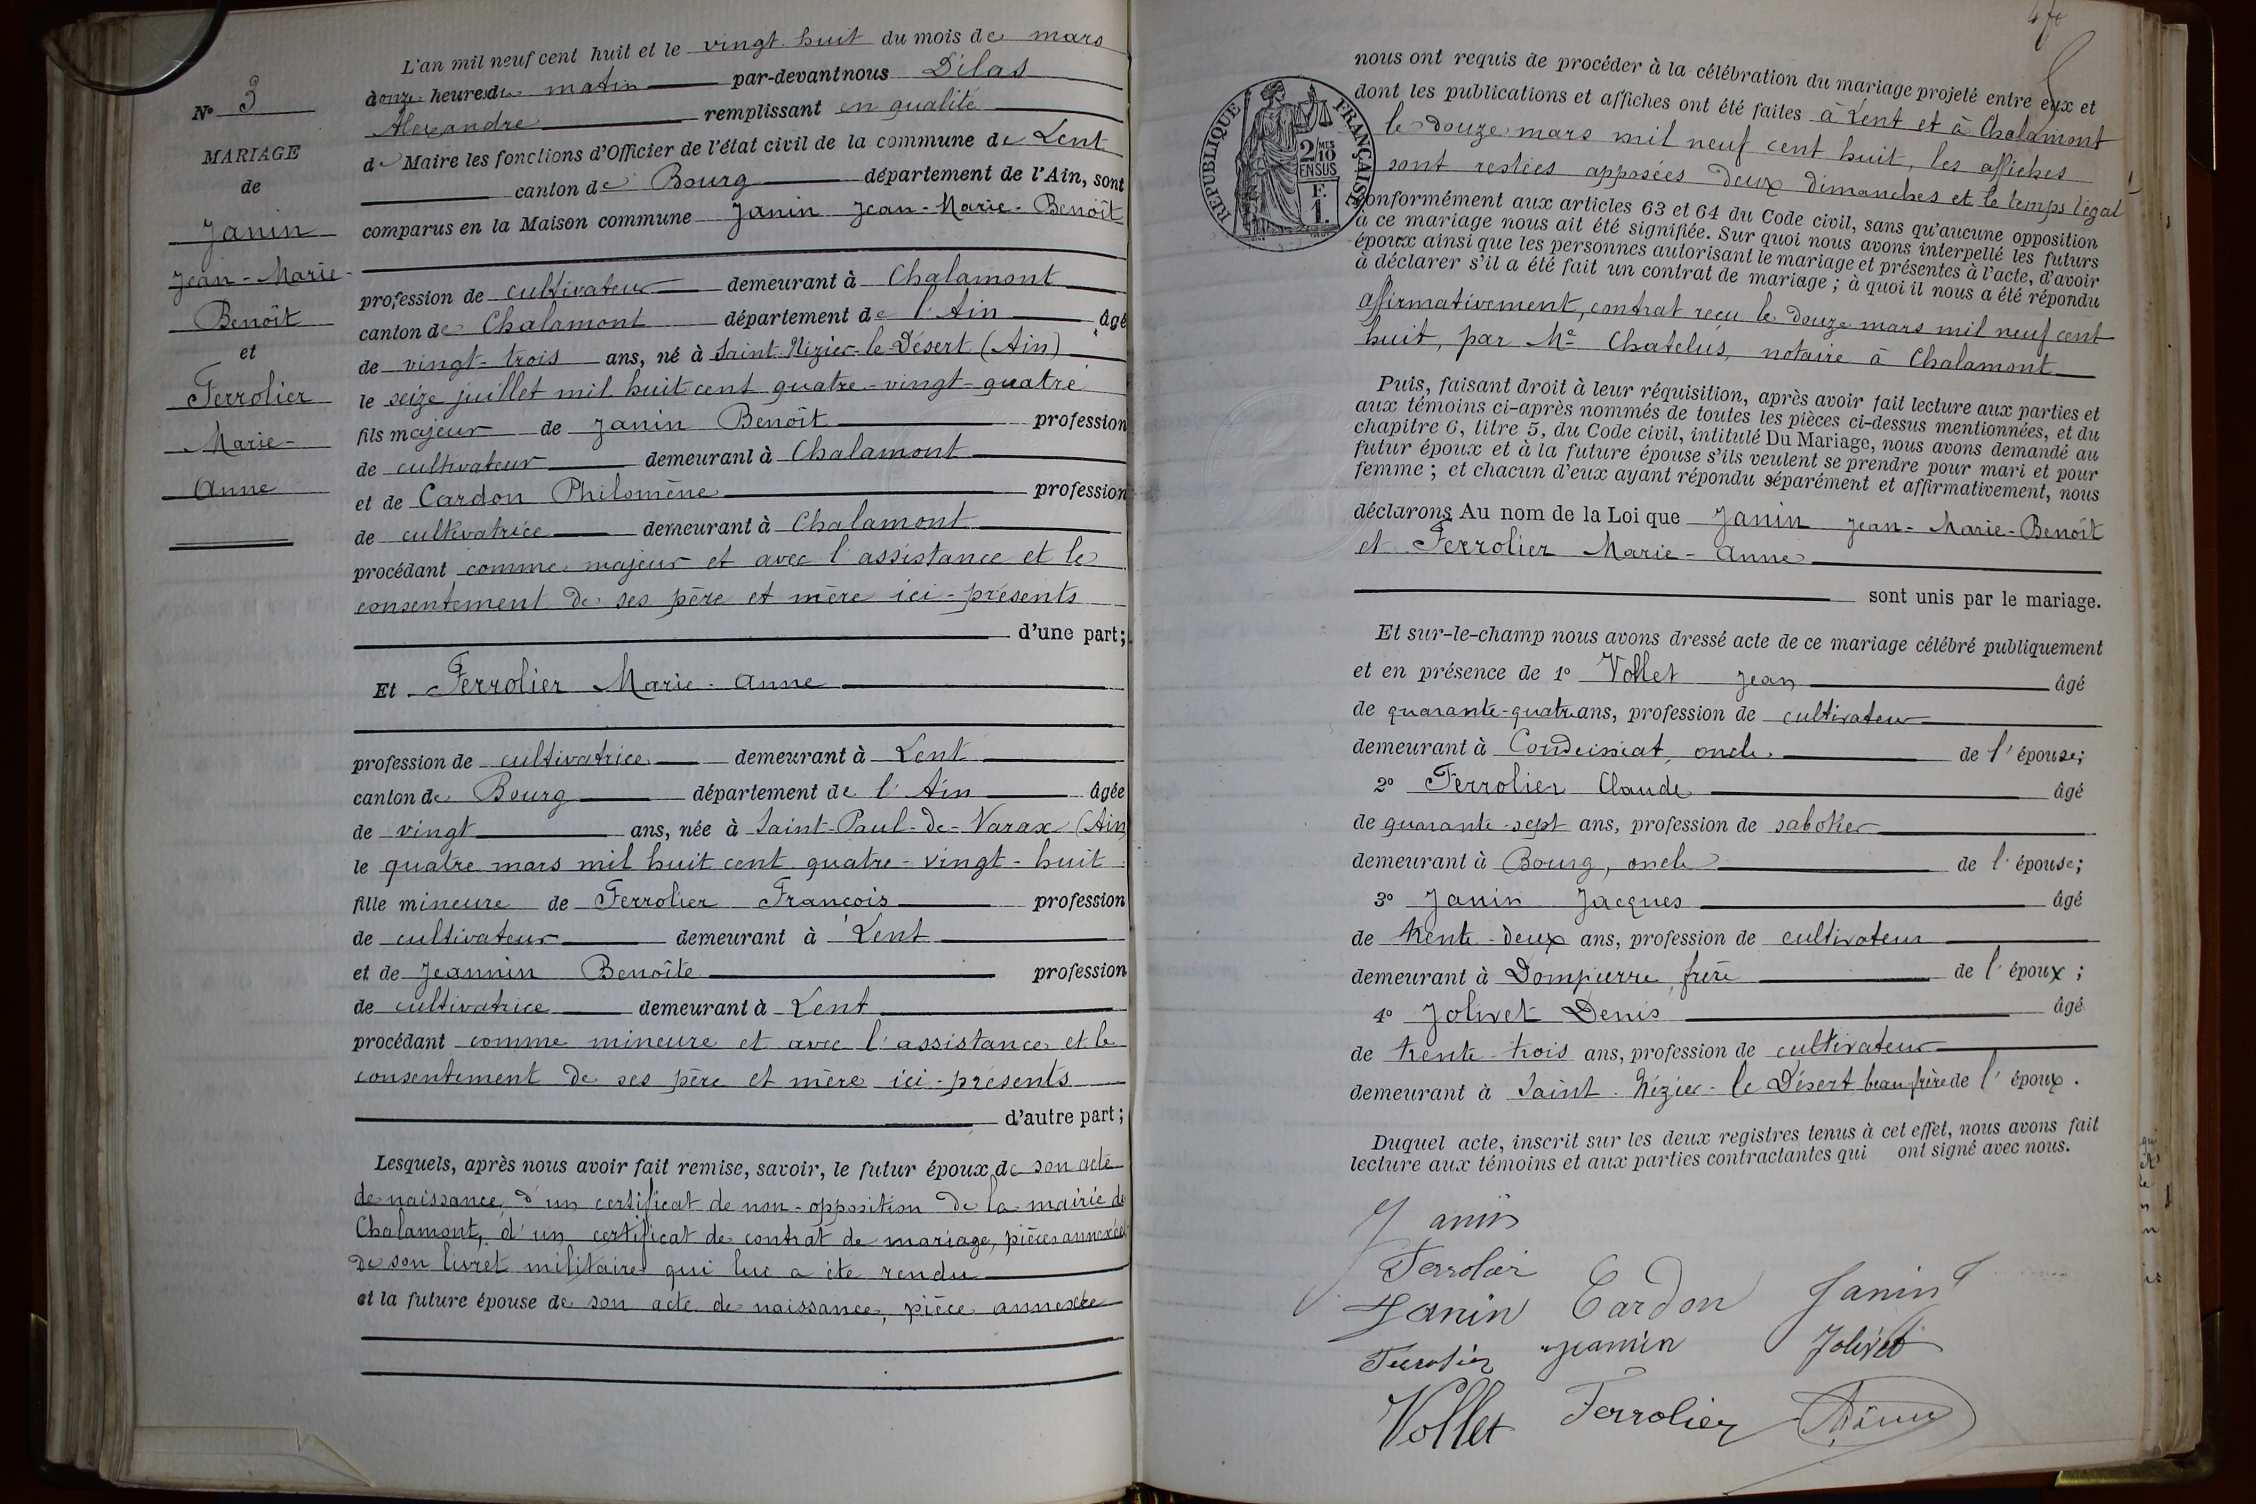 N° 3
MARIAGE
de
Janin
Jean-Marie-
Benoît
et
Ferrolier
Marie-
Anne
L'an mil neuf cent huit et le vingt-huit du mois de mars
à onze heures du matin par-devant nous Dilas
Alexandre remplissant en qualité
de Maire les fonctions d'Officier de l'état civil de la commune de Lent
canton de Bourg département de l'Ain, sont
comparus en la Maison commune Janin Jean-Marie-Benoît
profession de cultivateur demeurant à Chalamont
canton de Chalamont département de l'Ain âgé
de vingt-trois ans, né à Saint-Nizier-le-Désert (Ain)
le seize juillet mil huit cent quatre-vingt-quatre
fils majeur de Janin Benoît profession
de cultivateur demeurant à Chalamont
et de Cardon Philomène profession
de cultivatrice demeurant à Chalamont
procédant comme majeur et avec l'assistance et le
consentement de ses père et mère ici-présents
d'une part;
Et Ferrolier Marie-Anne
profession de cultivatrice demeurant à Lent
canton de Bourg département de l'Ain âgée
de vingt ans, née à Saint-Paul-de-Varax (Ain)
le quatre mars mil huit cent quatre-vingt-huit
fille mineure de Ferrolier François profession
de cultivateur demeurant à Lent
et de Jeannin Benoîte profession
de cultivatrice demeurant à Lent
procédant comme mineure et avec l'assistance et le
consentement de ses père et mère ici-présents
d'autre part;
Lesquels, après nous avoir fait remise, savoir, le futur époux de son acte
de naissance, d'un certificat de non-opposition de la mairie de
Chalamont, d'un certificat de contrat de mariage, pièces annexées
de son livret militaire qui lui a été rendu
et la future épouse de son acte de naissance, pièce annexée
RÉPUBLIQUE FRANÇAISE
2/10 MES
EN SUS
F.
1.
nous ont requis de procéder à la célébration du mariage projeté entre eux et
dont les publications et affiches ont été faites à Lent et à Chalamont
le douze mars mil neuf cent huit, les affiches
sont restées apposées deux dimanches et le temps légal
conformément aux articles 63 et 64 du Code civil, sans qu'aucune opposition
à ce mariage nous ait été signifiée. Sur quoi nous avons interpellé les futurs
époux ainsi que les personnes autorisant le mariage et présentes à l'acte, d'avoir
à déclarer s'il a été fait un contrat de mariage; à quoi il nous a été répondu
affirmativement, contrat reçu le douze mars mil neuf cent
huit, par Me Chatelus, notaire à Chalamont
Puis, faisant droit à leur réquisition, après avoir fait lecture aux parties et
aux témoins ci-après nommés de toutes les pièces ci-dessus mentionnées, et du
chapitre 6, titre 5, du Code civil, intitulé Du Mariage, nous avons demandé au
futur époux et à la future épouse s'ils veulent se prendre pour mari et pour
femme; et chacun d'eux ayant répondu séparément et affirmativement, nous
déclarons Au nom de la Loi que Janin Jean-Marie-Benoît
et Ferrolier Marie-Anne
sont unis par le mariage.
Et sur-le-champ nous avons dressé acte de ce mariage célébré publiquement
et en présence de 1° Vollet Jean âgé
de quarante-quatre ans, profession de cultivateur
demeurant à Condeissiat, oncle de l'épouse;
2° Ferrolier Claude âgé
de quarante-sept ans, profession de sabotier
demeurant à Bourg, oncle de l'épouse;
3° Janin Jacques âgé
de trente-deux ans, profession de cultivateur
demeurant à Dompierre, frère de l'époux;
4° Jolivet Denis âgé
de trente-trois ans, profession de cultivateur
demeurant à Saint-Nizier-le Désert beau frère de l'époux.
Duquel acte, inscrit sur les deux registres tenus à cet effet, nous avons fait
lecture aux témoins et aux parties contractantes qui ont signé avec nous.
Janin
Ferrolier
Janin Cardon Janin
Ferrolier Jeannin Jolivet
Vollet Ferrolier